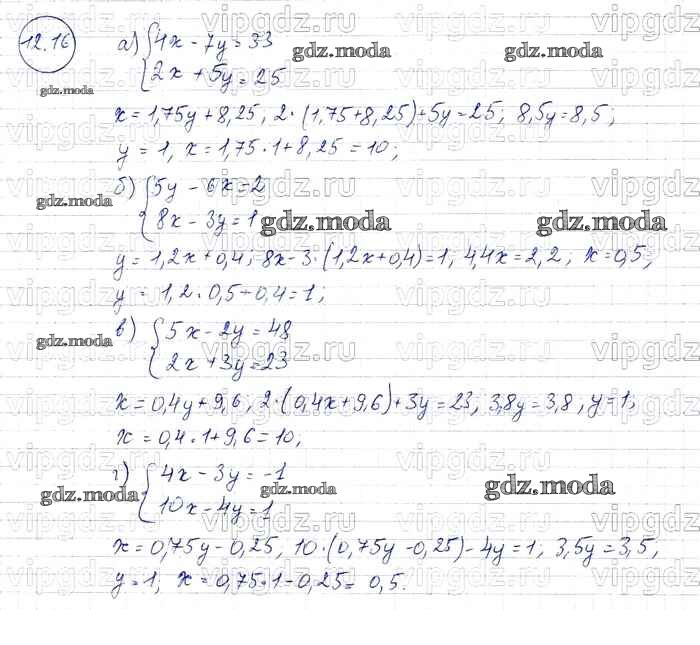 12.16
а) {4x - 7y = 33
{2x + 5y = 25
gdz.moda gdz.moda
gdz.moda
x = 1,75y + 8,25, 2·(1,75+8,25)+5y=25; 8,5y=8,5;
y = 1, x = 1,75·1+8,25 = 10;
б) {5y - 6x = 2
{8x - 3y = 1
gdz.moda gdz.moda gdz.moda
y = 1,2x+0,4; 8x-3·(1,2x+0,4)=1, 4,4x=2,2; x=0,5,
y = 1,2·0,5+0,4=1;
в) {5x-2y=48
{2x+3y=23
gdz.moda
x = 0,4y+9,6, 2·(0,4x+9,6)+3y=23, 3,8y=3,8, y=1;
x = 0,4·1+9,6=10,
г) {4x-3y=-1
{10x-4y=1
gdz.moda gdz.moda gdz.moda
x = 0,75y-0,25, 10·(0,75y-0,25)-4y=1; 3,5y=3,5,
y=1, x = 0,75·1-0,25= 0,5.